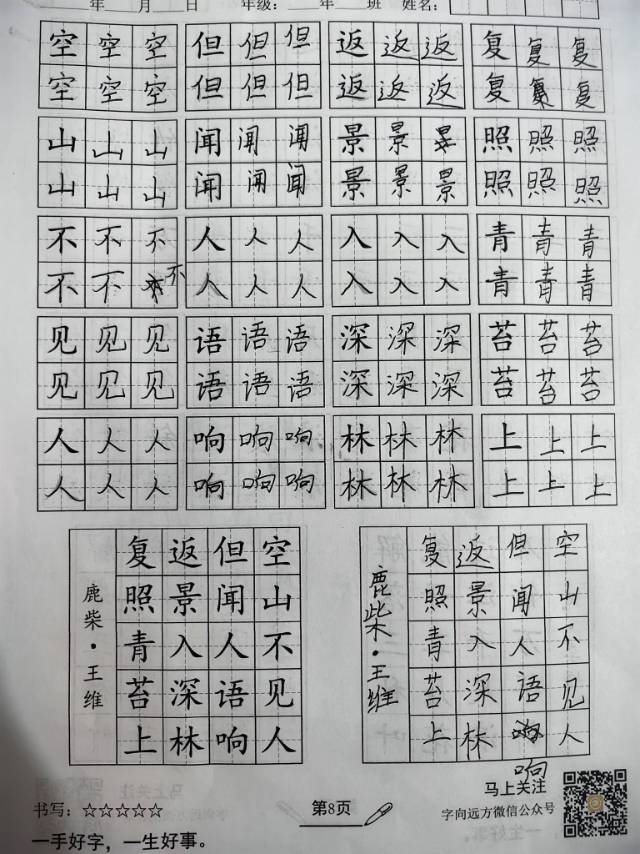 年 月 日 年级: 年 班 姓名:
空 空 空 但 但 但 返 返 返 复 复 复
空 空 空 但 但 但 返 返 返 复 复 复
山 山 山 闻 闻 闻 景 景 景 照 照 照
山 山 山 闻 闻 闻 景 景 景 照 照 照
不 不 不 人 人 人 入 入 入 青 青 青
不 不 不 人 人 人 入 入 入 青 青 青
见 见 见 语 语 语 深 深 深 苔 苔 苔
见 见 见 语 语 语 深 深 深 苔 苔 苔
人 人 人 响 响 响 林 林 林 上 上 上
人 人 人 响 响 响 林 林 林 上 上 上
空山不见人
但闻人语响
返景入深林
复照青苔上
鹿柴·王维
空山不见人
但闻人语响
返景入深林
复照青苔上
鹿柴·王维
书写:☆☆☆☆☆
第8页
马上关注
字向远方微信公众号
一手好字,一生好事。